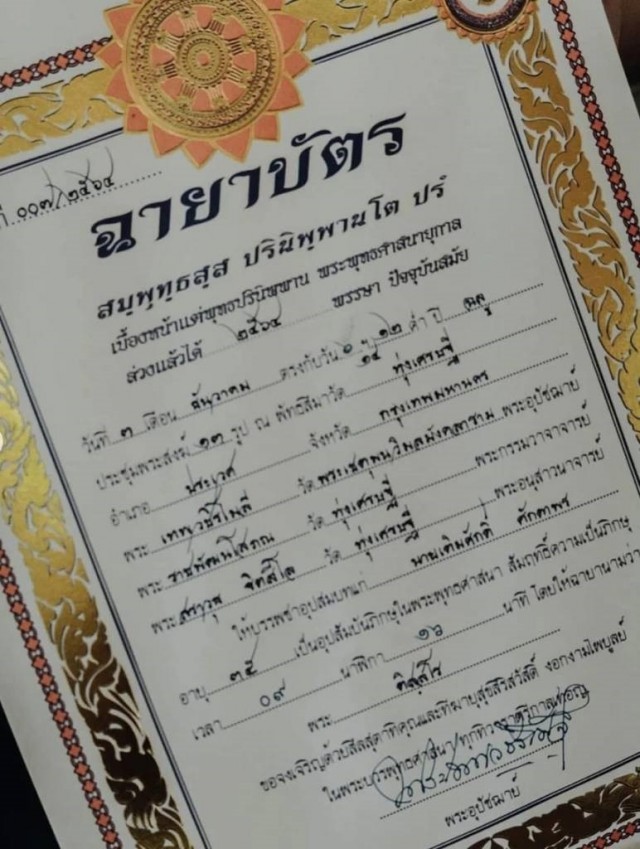 ที่ ๐๐๗/๒๕๖๔
ฉายาบัตร
สมฺพุทฺธสฺส ปรินิพฺพานโต ปรํ
เบื้องหน้าแต่พุทธปรินิพพาน พระพุทธศาสนายุกาล
ล่วงแล้วได้ ๒๕๖๔ พรรษา ปัจจุบันสมัย
วันที่ ๓ เดือน ธันวาคม ตรงกับวัน ๑๔ ๑๒ ค่ำ ปี ฉลู
ประชุมพระสงฆ์ ๑๓ รูป ณ พัทธสีมาวัด ทุ่งเศรษฐี
อำเภอ ประเวศ จังหวัด กรุงเทพมหานคร
พระ เทพวชิรโมลี วัด พระเชตุพนวิมลมังคลาราม พระอุปัชฌาย์
พระ ราชพัฒนโสภณ วัด ทุ่งเศรษฐี พระกรรมวาจาจารย์
พระ วัด ทุ่งเศรษฐี พระอนุสาวนาจารย์
ให้บรรพชาอุปสมบทแก่ นายเติมศักดิ์
อายุ ๓๕ เป็นอุปสัมบันภิกษุในพระพุทธศาสนา สัมฤทธิ์ความเป็นภิกษุ
เวลา ๐๙ นาฬิกา ๑๖ นาที โดยให้ฉายานามว่า
พระ
ขอจงเจริญด้วยสีลสุตาทิคุณและทีฆายุสุขสิริสวัสดิ์ งอกงามไพบูลย์
ในพระบวรพุทธศาสนา ทุกทิวาราตรีกาลเทอญ
พระอุปัชฌาย์